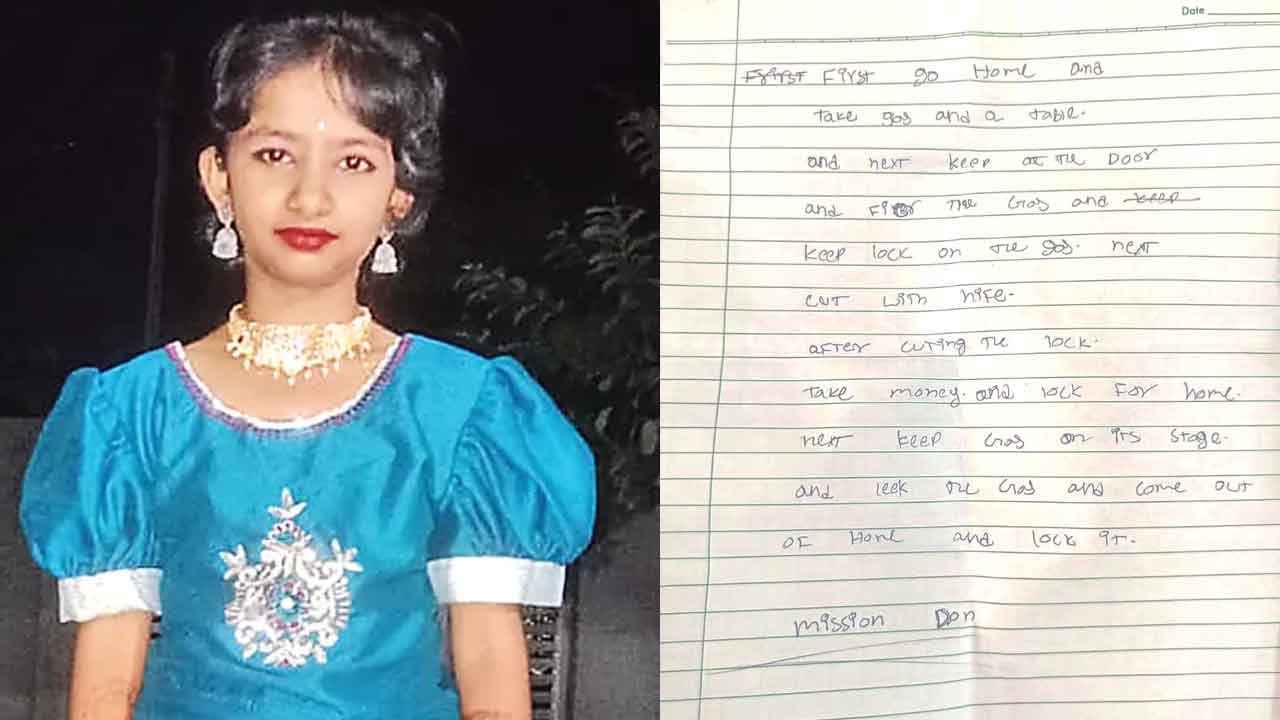 Date
First First go Home and
take gas and a table.
and next keep at the Door
and Fier the Gas and keep
keep lock on the gas. next
cut with nife.
after cuting the lock.
take money. and lock for home.
next keep Gas on its stage.
and leek the Gas and come out
of Home and lock it.
mission Don